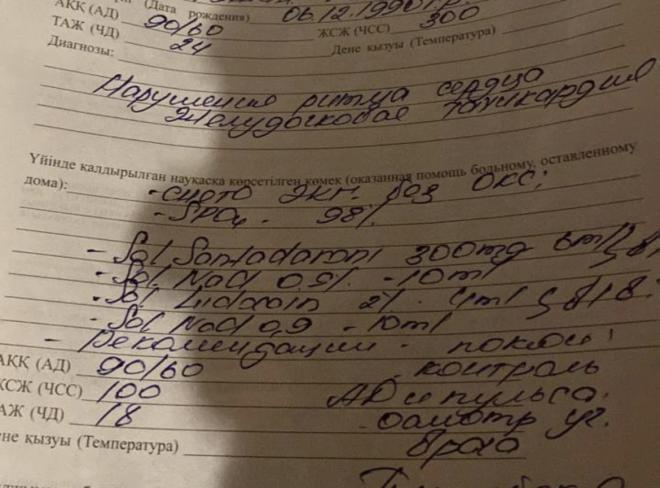 (Дата рождения) 06.12.1990 г.р.
АҚҚ (АД) 90/60 ЖСЖ (ЧСС) 300
ТАЖ (ЧД) 24 Дене қызуы (Температура)
Диагнозы:
Нарушение ритма сердца
Желудочковая тахикардия
Үйінде қалдырылған науқасқа көрсетілген көмек (оказанная помощь больному, оставленному
дома): - снято ЭКГ. без ОКС;
- SpO₂ - 98%
- Sol 300mg 6ml
- Sol. NaCl 0,9% - 10ml
- Sol. 2% - 4ml
- Sol. NaCl 0,9 - 10ml
- Рекомендации - покой
АҚҚ (АД) 90/60 - контроль
ЖСЖ (ЧСС) 100 АД и пульса.
АЖ (ЧД) 18 - осмотр уч.
ене қызуы (Температура) врача